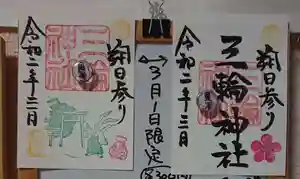 朔日参り
三輪神社
令和二年三月
3月1日限定
三輪神社
朔日参り
三輪神社
令和二年三月